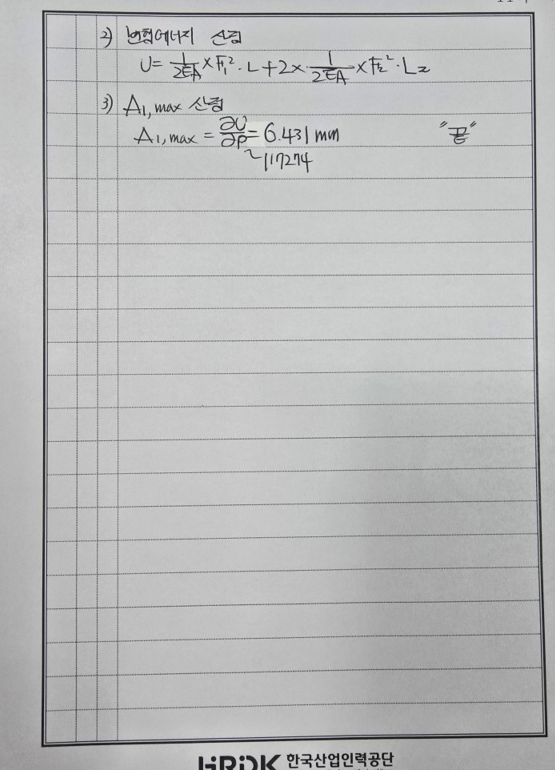 2) 변형에너지 산정
U = 1/2EA × F₁² · L + 2 × 1/2EA × F₂² · L₂
3) Δ₁,max 산정
Δ₁,max = ∂U/∂P = 6.431 mm "끝"
~117274
HRDK 한국산업인력공단